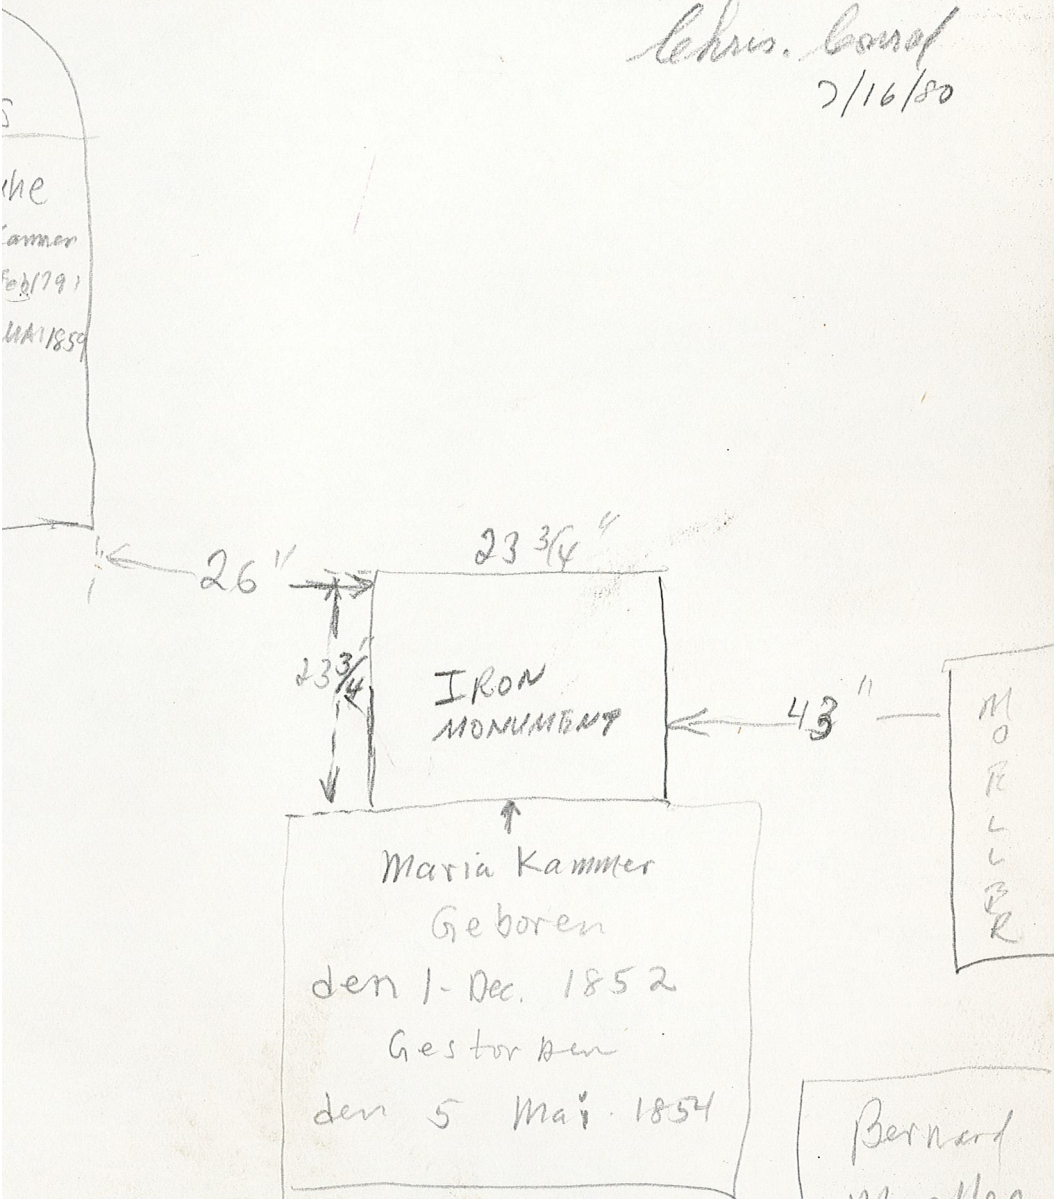 Chris. Conrad
7/16/80
S
uhe
Kammer
Feb 1791
MAI 1859
23 3/4"
26"
23 3/4"
IRON
MONUMENT
43"
MOELLER
Maria Kammer
Geboren
den 1- Dec. 1852
Gestorben
den 5 Mai. 1854
Bernard